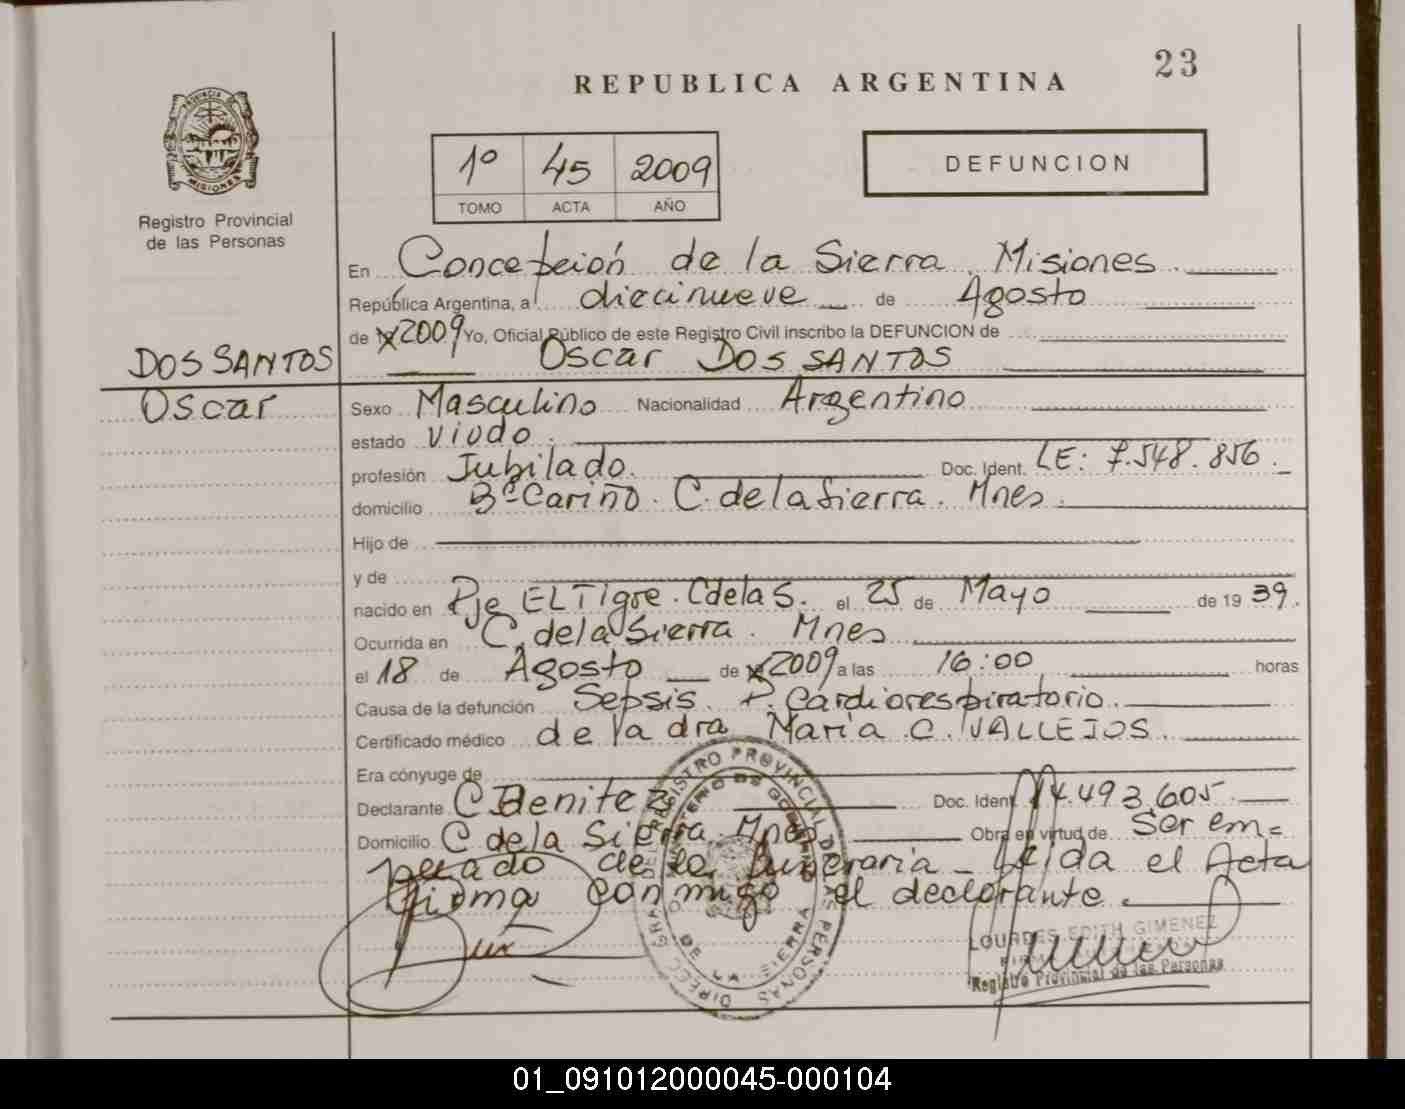 23
REPUBLICA ARGENTINA
PROVINCIA DE
MISIONES
Registro Provincial
de las Personas
1º 45 2009
TOMO ACTA AÑO
DEFUNCION
En Concepción de la Sierra. Misiones.
República Argentina, a diecinueve de Agosto
de 2009 Yo, Oficial Público de este Registro Civil inscribo la DEFUNCION de
Oscar DOS SANTOS
DOS SANTOS
Oscar
Sexo Masculino Nacionalidad Argentino
estado viudo.
profesión Jubilado. Doc. Ident. LE: 7.548.856.
domicilio Bº Cariño. C. de la Sierra. Mnes.
Hijo de
y de
nacido en Pje EL Tigre. C de la S. el 25 de Mayo de 19 39.
Ocurrida en C. de la Sierra. Mnes
el 18 de Agosto de 2009 a las 16:00 horas
Causa de la defunción Sepsis. P. Cardiorespiratorio.
Certificado médico de la dra María C. VALLEJOS.
Era cónyuge de
Declarante C Benitez Doc. Ident. 14.493.605.
Domicilio C de la Sierra. Mnes Obra en virtud de Ser em=
pleado de la funeraria_ Leida el Acta
firma conmigo el declarante.
REGISTRO PROVINCIAL DE LAS PERSONAS
MINISTERIO DE GOBIERNO
DE LA SIERRA
LOURDES EDITH GIMENEZ
Registro Provincial de las Personas
01_091012000045-000104